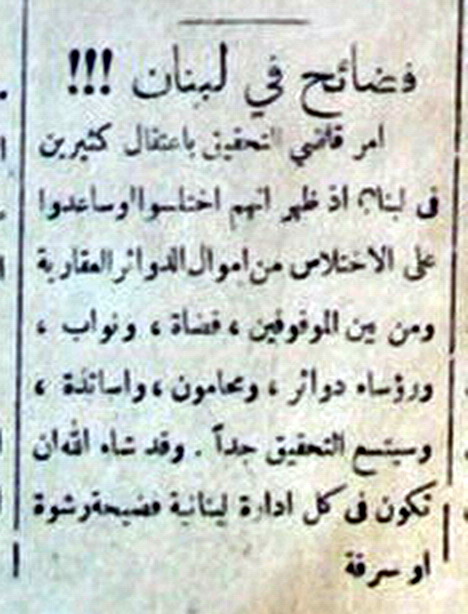 فضائح في لبنان !!!
امر قاضي التحقيق باعتقال كثيرين
فى لبنان اذ ظهر انهم اختلسوا اوساعدوا
على الاختلاس من اموال الدوائر العقارية
ومن بين الموقوفين ، قضاة ، ونواب ،
ورؤساء دوائر ، ومحامون ، واساتذة ،
وسيتسع التحقيق جداً . وقد شاء الله ان
تكون فى كل ادارة لبنانية فضيحة رشوة
او سرقة